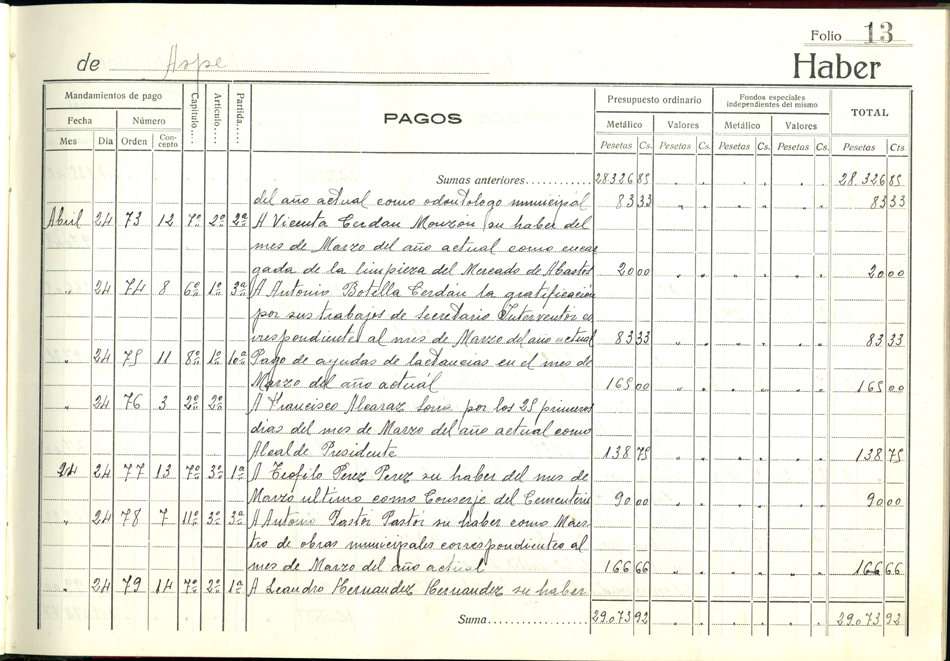 Folio 13
de Aspe Haber
Mandamientos de pago Capítulo.... Artículo.... Partida.... PAGOS Presupuesto ordinario Fondos especiales independientes del mismo TOTAL
Fecha Número Metálico Valores Metálico Valores
Mes Día Orden Concepto Pesetas Cs. Pesetas Cs. Pesetas Cs. Pesetas Cs. Pesetas Cts
Sumas anteriores............ 28.326 85 " " " " " " 28.326 85
del año actual como odontólogo municipal 83 33 " " " " " " 83 33
Abril 24 73 12 7º 2º 2ª A Vicenta Cerdán Monzón, su haber del
mes de Marzo del año actual como encar
gada de la limpieza del Mercado de Abastos 20 00 " " " " " " 20 00
" 24 74 8 6º 1º 3ª A Antonio Botella Cerdán la gratificación
por sus trabajos de Secretario Interventor co
rrespondiente al mes de Marzo del año actual 83 33 " " " " " " 83 33
" 24 75 11 8º 1º 10ª Pago de ayudas de lactancias en el mes de
Marzo del año actual 165 00 " " " " " " 165 00
" 24 76 3 2º 2º A Francisco Alcaraz por los 25 primeros
dias del mes de Marzo del año actual como
Alcalde Presidente 138 75 " " " " " " 138 75
24 24 77 13 7º 3º 1ª A Teofilo Perez Perez su haber del mes de
Marzo ultimo como Conserje del Cementerio 90 00 " " " " " " 90 00
" 24 78 7 11º 3º 3ª A Antonio Pastor Pastor su haber como Maes
tro de obras municipales correspondientes al
mes de Marzo del año actual 166 66 " " " " " " 166 66
" 24 79 14 7º 2º 1ª A Leandro Hernandez Hernandez su haber
Suma................... 29.073 92 " " " " " " 29.073 92